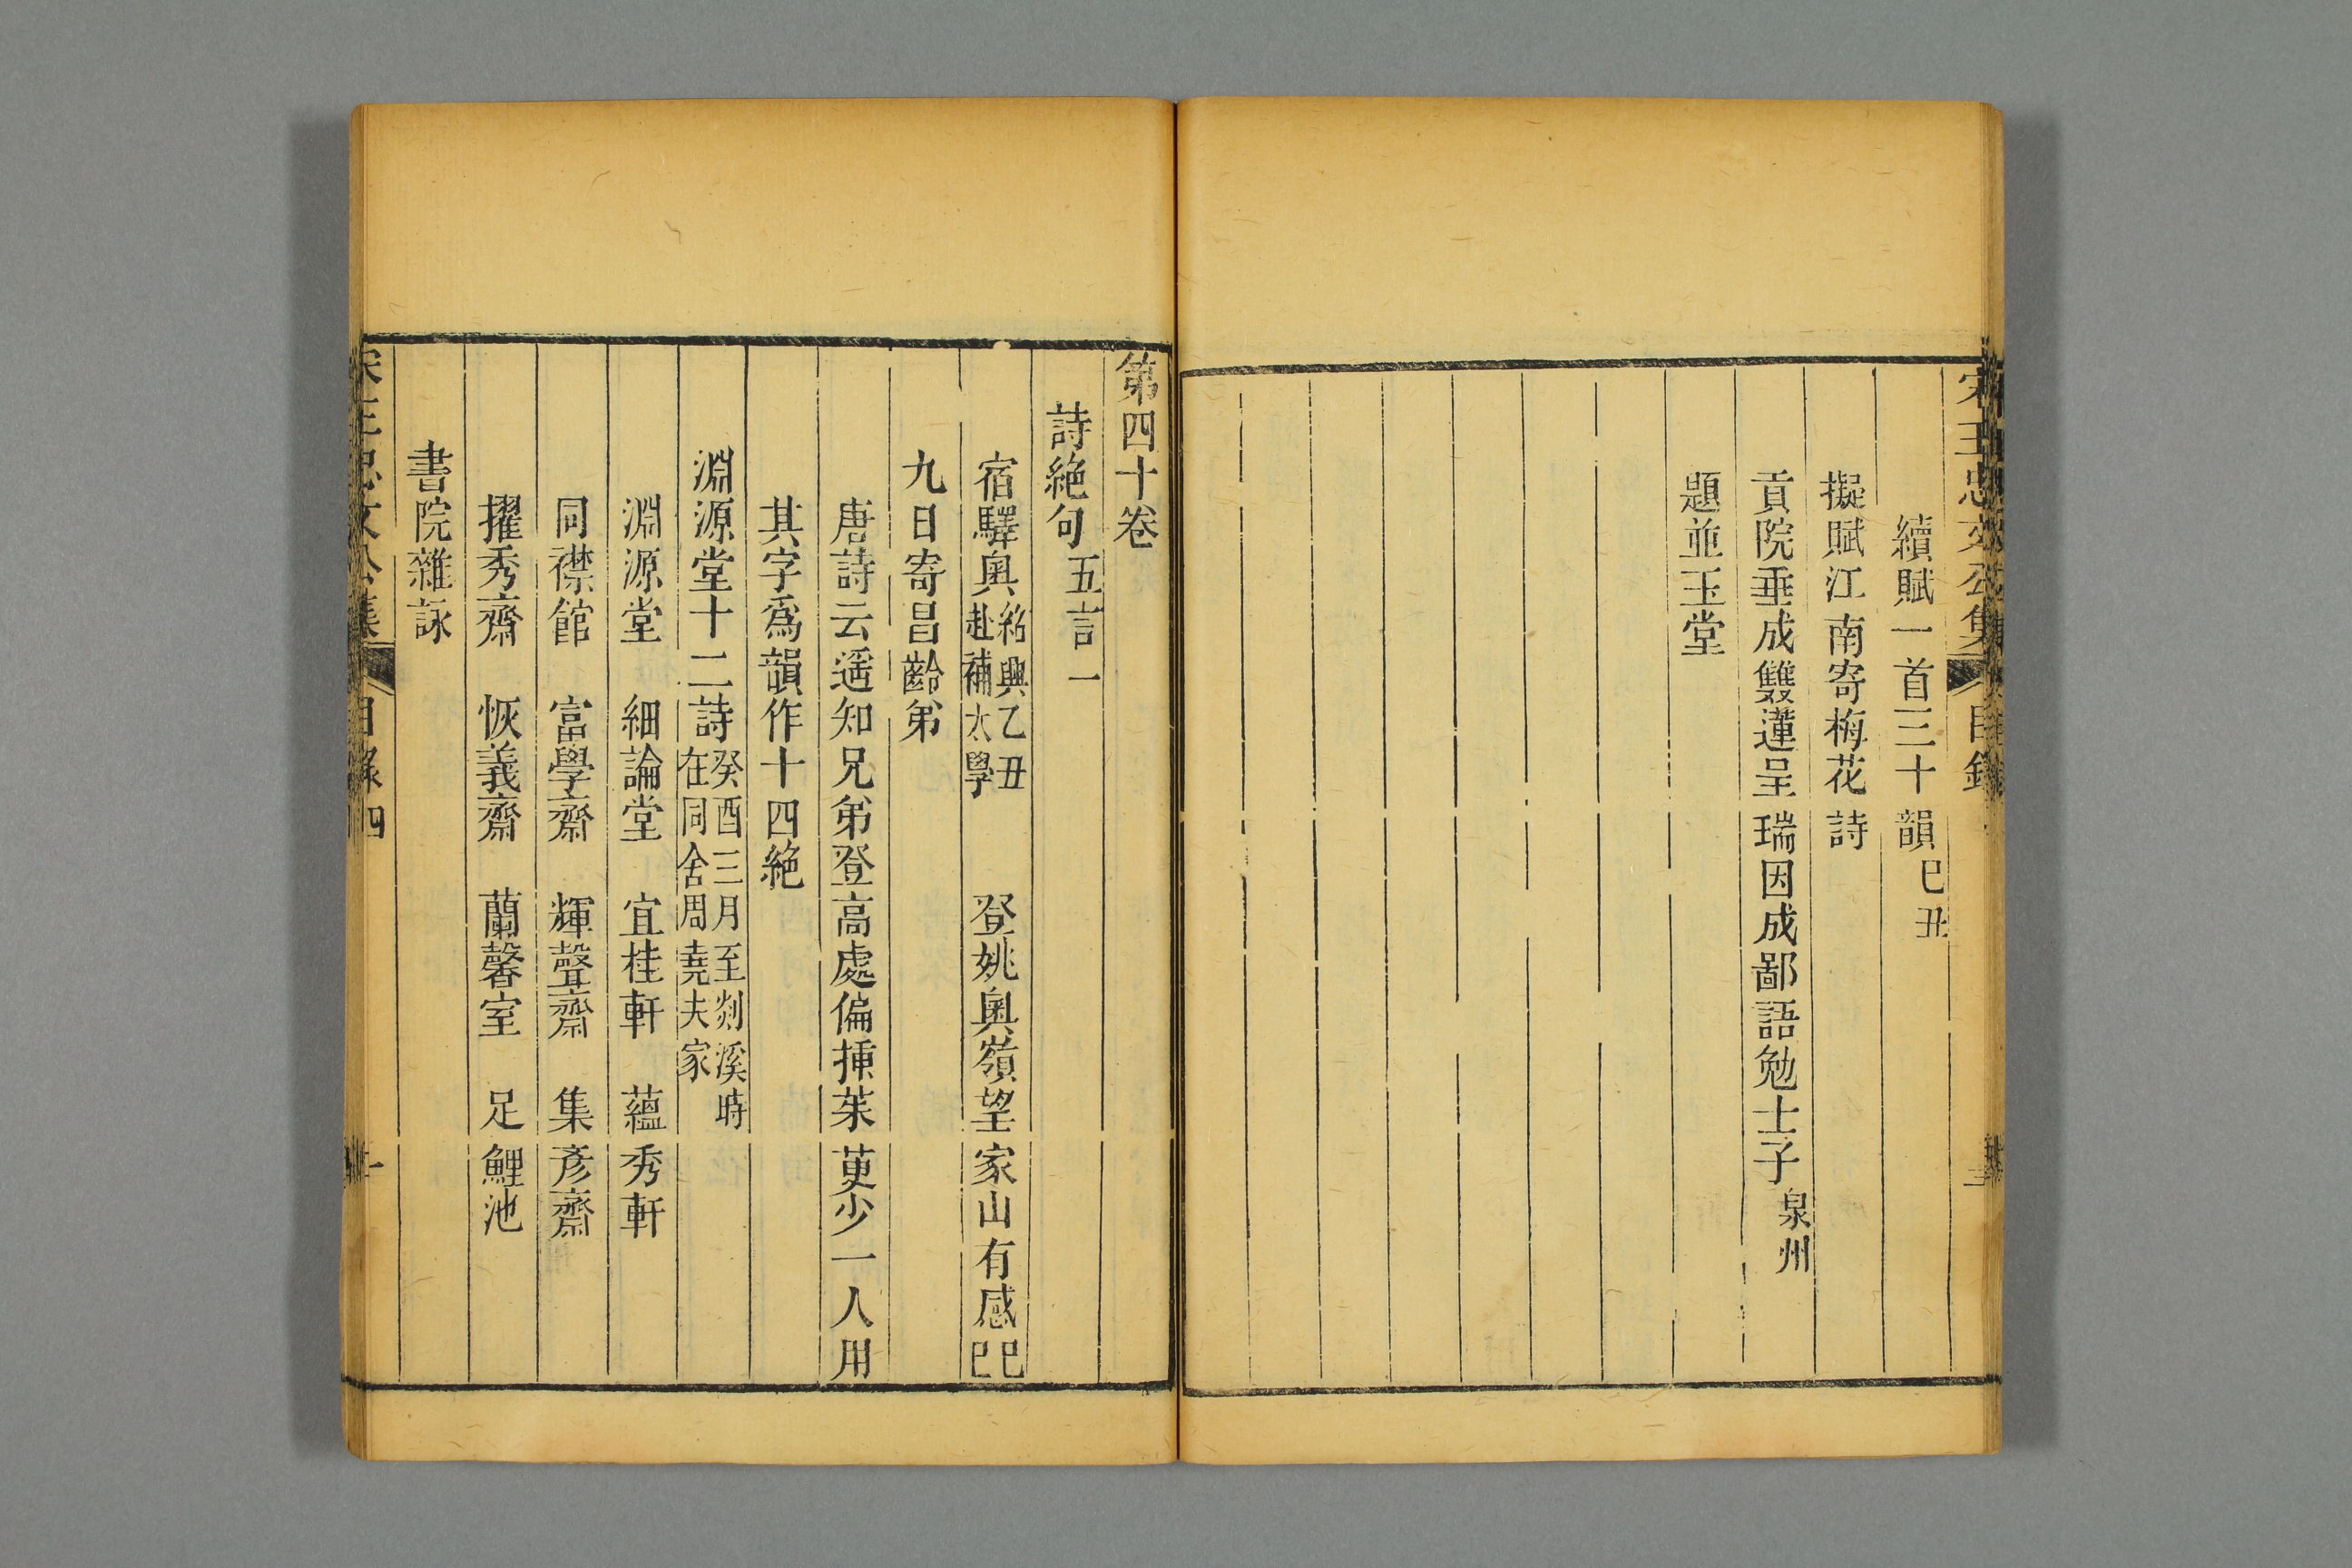 續賦一首三十韻己丑
擬賦江南寄梅花詩
貢院垂成雙蓮呈瑞因成鄙語勉士子泉州
題並玉堂
第四十卷
詩絶句五言一
宿驛奥紹興乙丑赴補太學 登姚奥嶺望家山有感己巳
九日寄昌齡弟
唐詩云遥知兄弟登高處偏挿茱萸少一人用
其字爲韻作十四絶
淵源堂十二詩癸酉三月至剡溪時在同舍周堯夫家
淵源堂 細論堂 宜桂軒 蘊秀軒
同襟館 富學齋 輝聲齋 集彥齋
擢秀齋 恢義齋 蘭馨室 足鯉池
書院雜詠
宋王忠文公集 目錄四